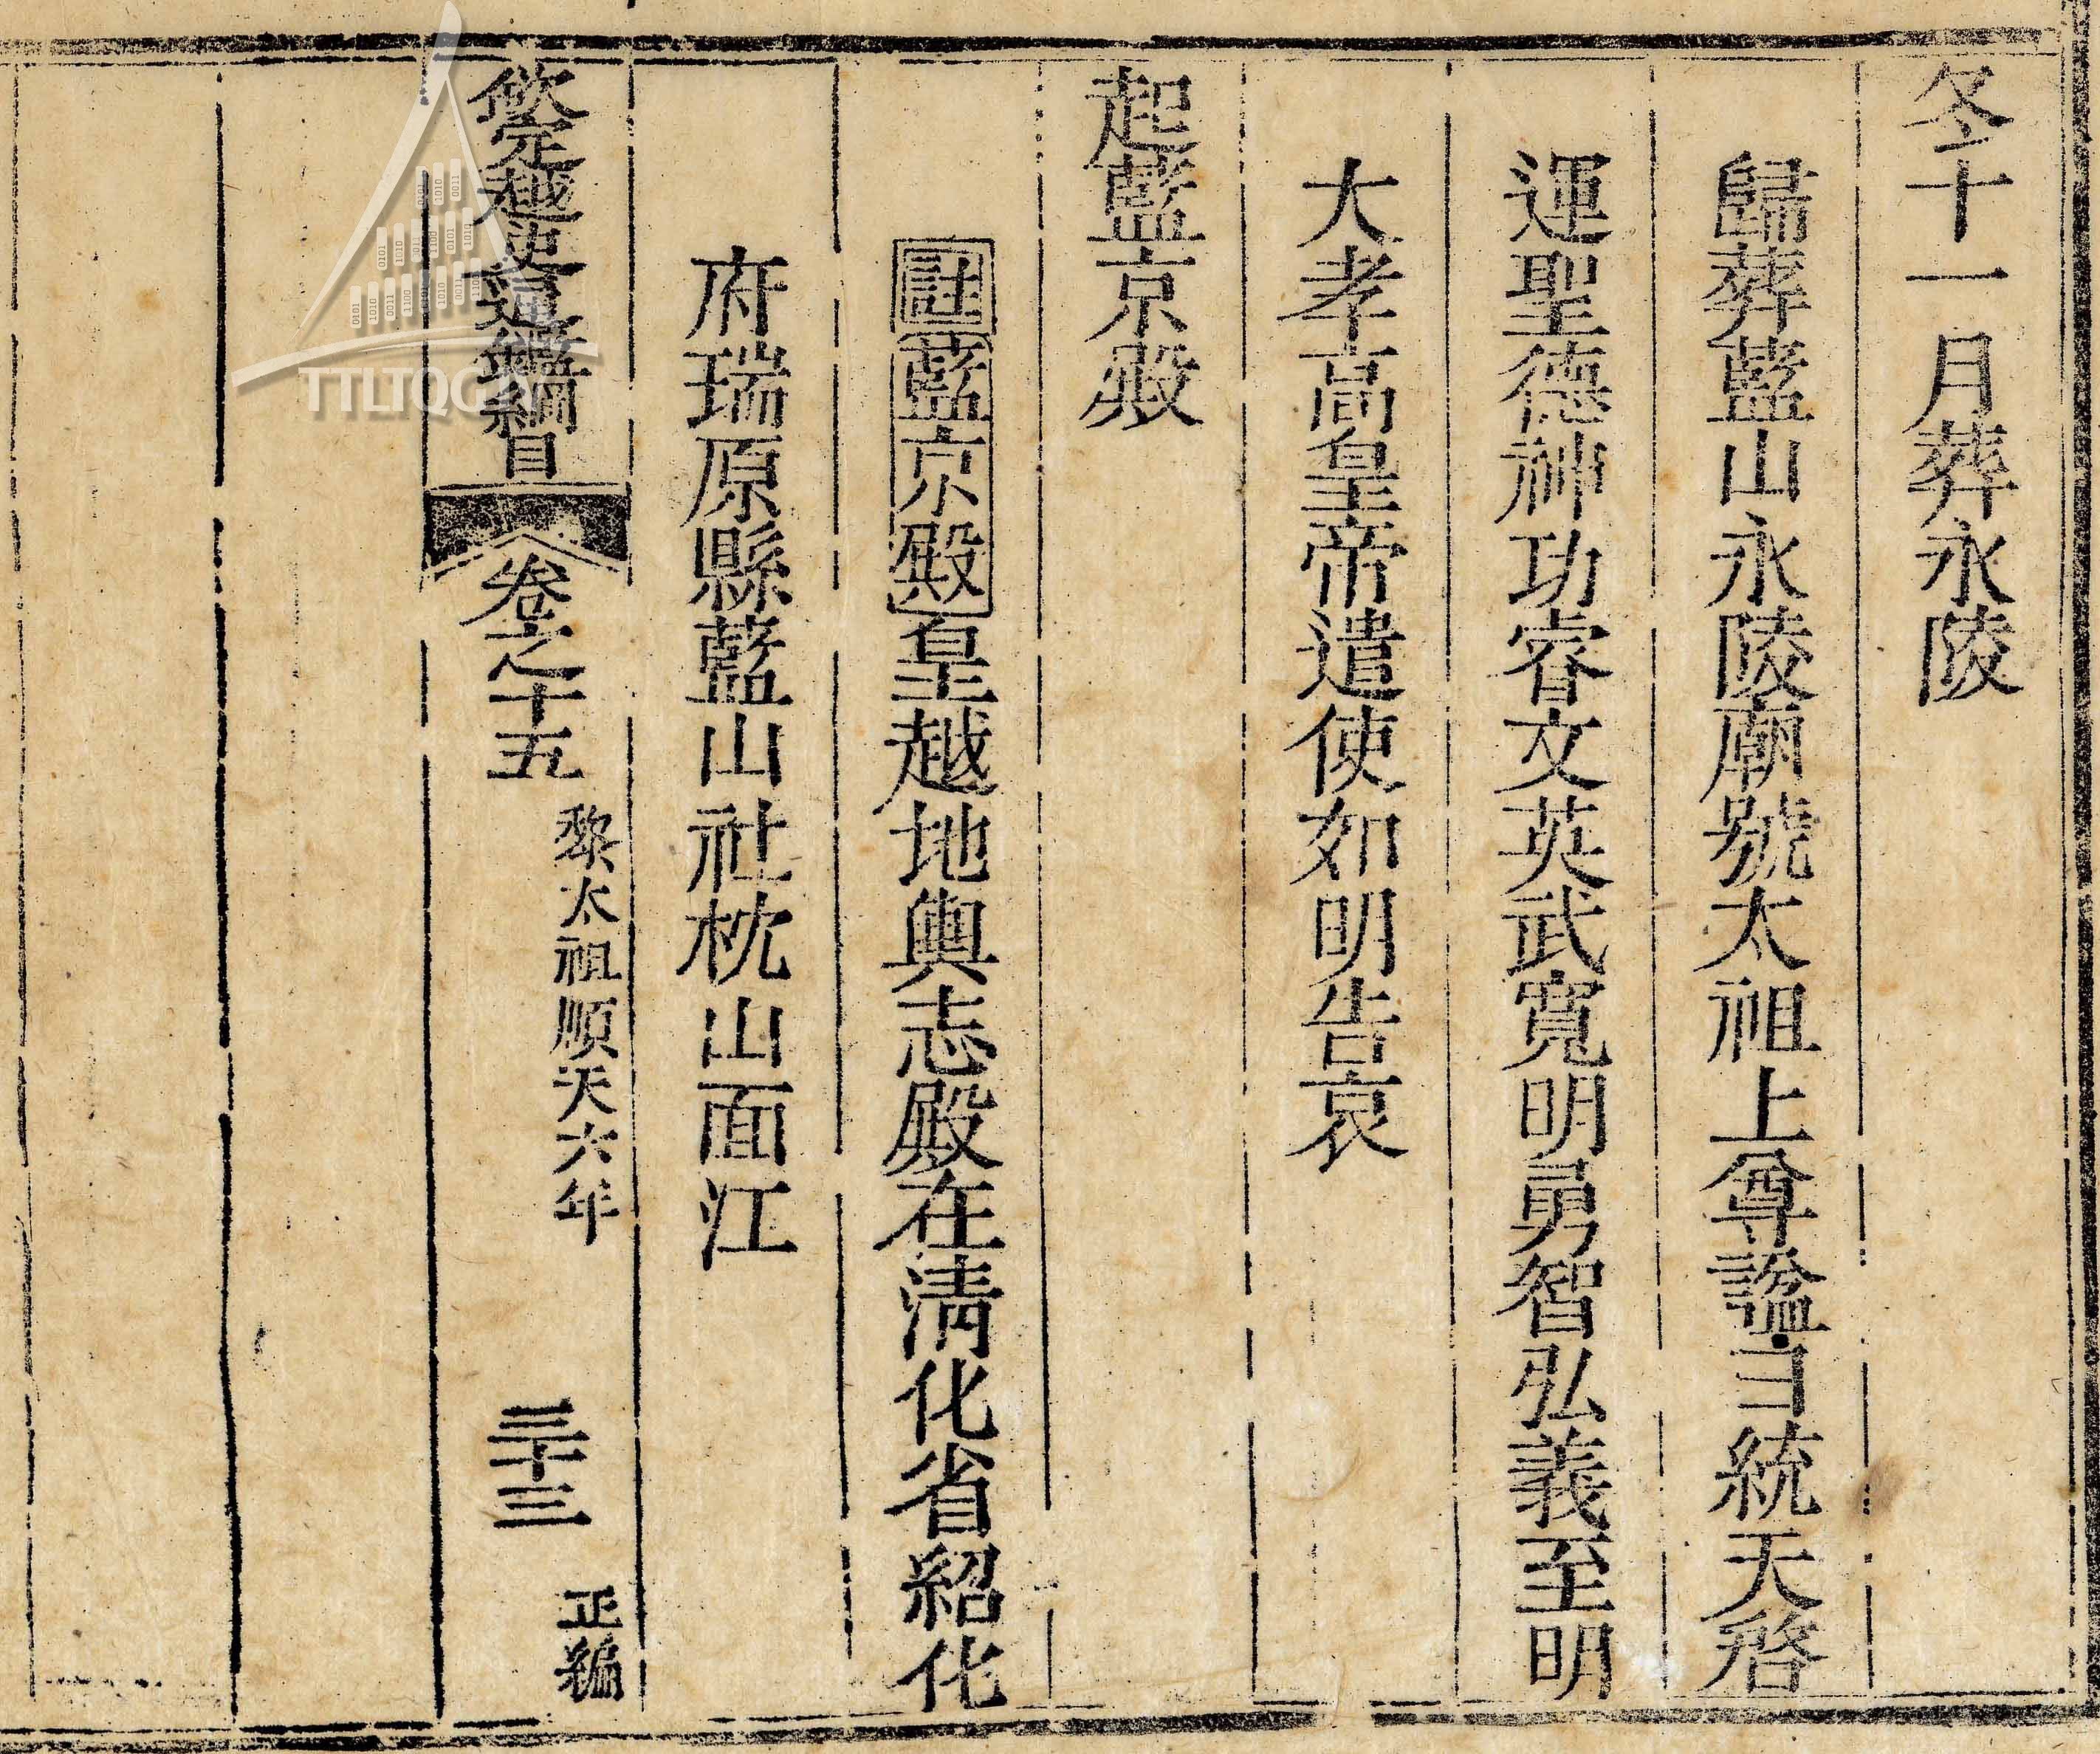 冬十一月葬永陵
歸葬藍山永陵廟號太祖上尊諡曰統天啓
運聖德神功睿文英武寬明勇智弘義至明
大孝高皇帝遣使如明告哀
起藍京殿
註藍京殿皇越地輿志殿在淸化省紹化
府瑞原縣藍山社枕山面江
欽定越史通鑑綱目 卷之十五 黎太祖順天六年 三十三 正編
TTLTQG